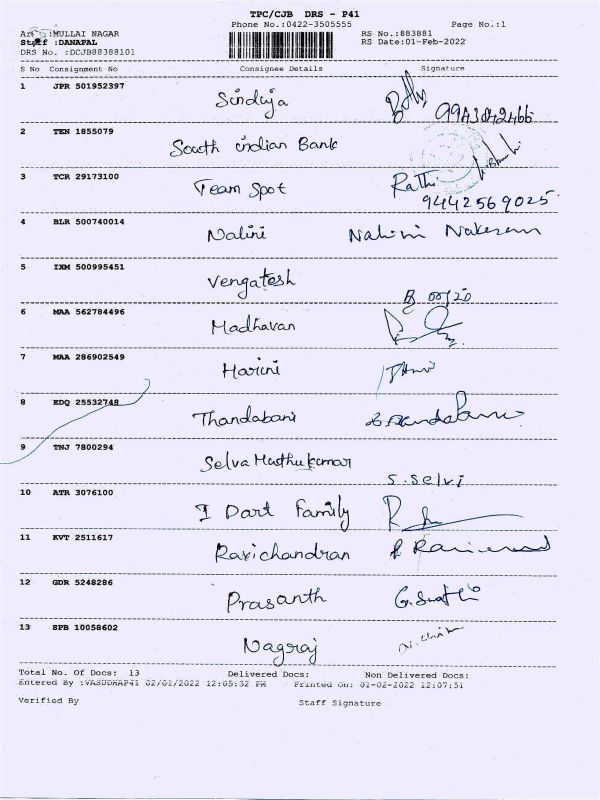 TPC/CJB DRS - P41
Phone No.:0422-3505555 Page No.:1
Area :MULLAI NAGAR RS No.:883881
Staff :DANAPAL RS Date:01-Feb-2022
DRS No. :DCJB88388101
S No Consignment No Consignee Details Signature
1 JPR 501952397 Sinduja
2 TEN 1855079 South indian Bank
3 TCR 29173100 Team Spot Rathi
9442569025
4 BLR 500740014 Nalini Nalini
5 IXM 500995451 Vengatesh
6 MAA 562784496 Madhavan
7 MAA 286902549 Harini
8 EDQ 25532748 Thandabani
9 TNJ 7800294 Selva Muthukumar S.Selvi
10 ATR 3076100 I Dart Family
11 KVT 2511617 Ravichandran
12 GDR 5248286 Prasanth
13 SPB 10058602 Nagraj
Total No. Of Docs: 13 Delivered Docs: Non Delivered Docs:
Entered By :VASUDHAP41 02/01/2022 12:05:32 PM Printed On: 01-02-2022 12:07:51
Verified By Staff Signature